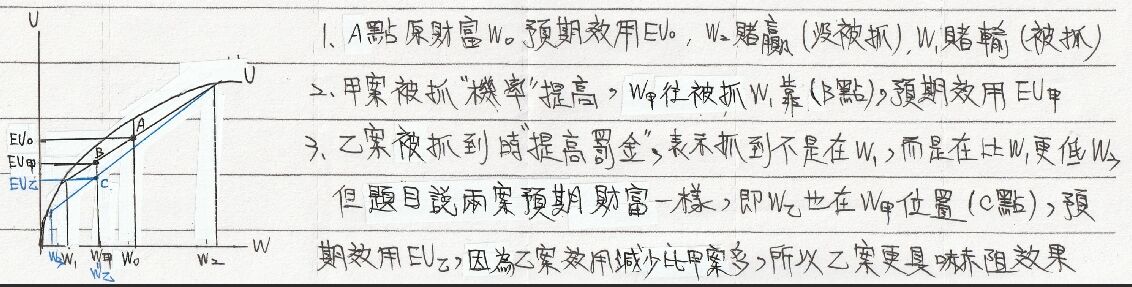 U
U
EU₀
EU甲
EU乙
A
B
C
W₃
W₁
W甲
W乙
W₀
W₂
W
1、A點原財富W₀預期效用EU₀,W₂賭贏(沒被抓),W₁賭輸(被抓)
2、甲案被抓"機率"提高,W甲往被抓W₁靠(B點),預期效用EU甲
3、乙案被抓到時"提高罰金",表示抓到不是在W₁,而是在比W₁更低W₃
但題目說兩案預期財富一樣,即W乙也在W甲位置(C點),預
期效用EU乙,因為乙案效用減少比甲案多,所以乙案更具嚇阻效果